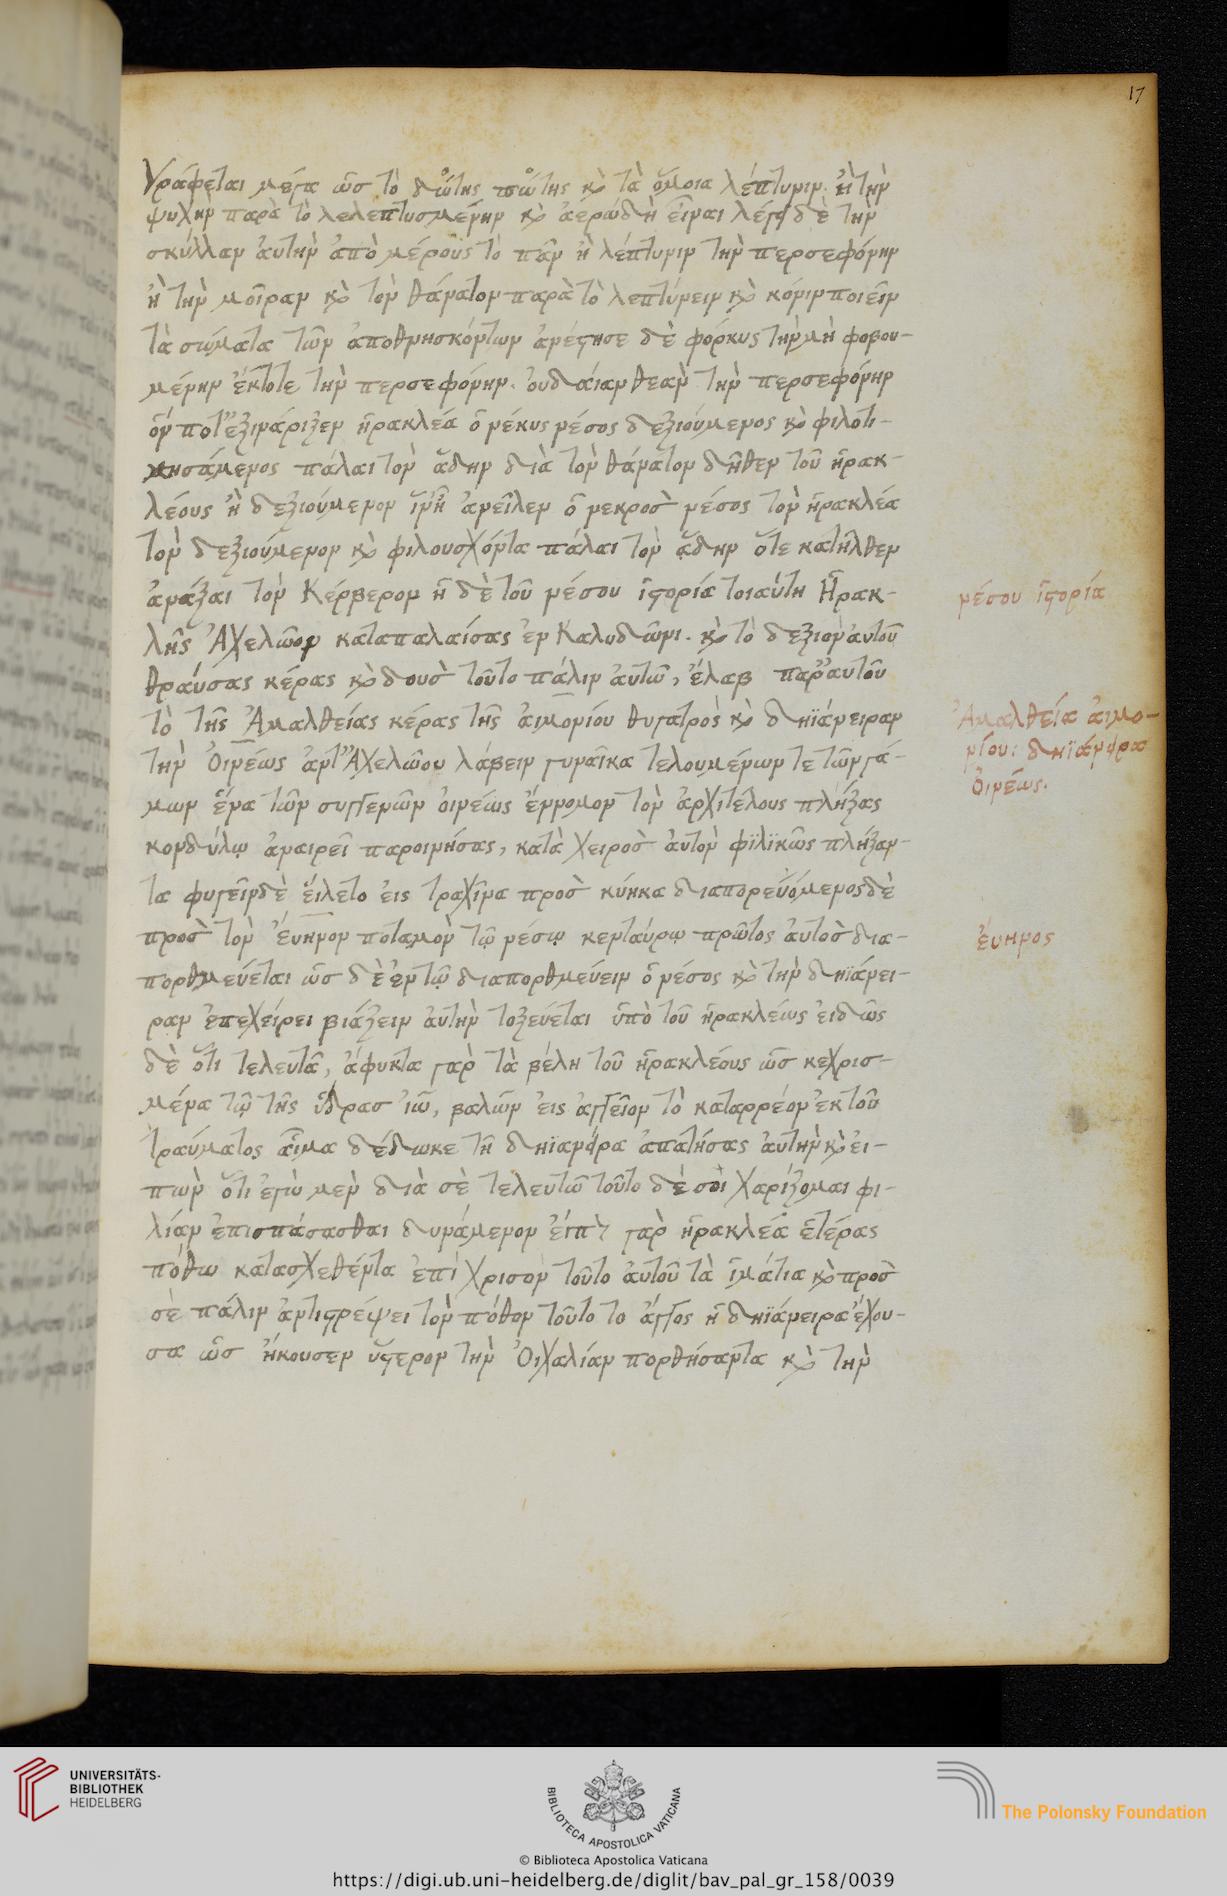 17
γράφεται μέγα ὡς τὸ δώτης πώτης καὶ τὰ ὅμοια λέπτυνιν. εἰ τὴν
ψυχὴν παρὰ τὸ λελεπτυσμένην καὶ ἀερώδη εἶναι λέγει δὲ τὴν
σκύλλαν ἀυτὴν ἀπὸ μέρους τὸ πᾶν ἢ λέπτυνιν τὴν περσεφόνην
ἢ τὴν μοῖραν καὶ τὸν θάνατον παρὰ τὸ λεπτύνειν καὶ κόνιν ποιεῖν
τὰ σώματα τῶν ἀποθνησκόντων ἀνέστησε δὲ φόρκυς τὴν μὴ φοβου-
μένην ἔκτοτε τὴν περσεφόνην. ὀυδαίαν θεὰν τὴν περσεφόνην
ὅν ποτ' ἐξινάριζεν ἡρακλέα ὁ νέκυς νέσος δεξιούμενος καὶ φιλοτι-
μησάμενος πάλαι τὸν ἅδην διὰ τὸν θάνατον δῆθεν τοῦ ἡρακ-
λέους ἢ δεξιούμενον ἵν' ἦ ἀνεῖλεν ὁ νεκρὸς νέσος τὸν ἡρακλέα
τὸν δεξιούμενον καὶ φιλουσχόντα πάλαι τὸν ἅδην ὅτε κατῆλθεν
ἀνάξαι τὸν Κέρβερον ἡ δὲ τοῦ νέσου ἱστορία τοιαύτη Ἡρακ-
λῆς Ἀχελῶον καταπαλαίσας ἐν Καλυδῶνι. καὶ τὸ δεξιὸν ἀυτοῦ
θραύσας κέρας καὶ δοὺς τοῦτο πάλιν ἀυτῶ, ἔλαβ παρ' ἀυτοῦ
τὸ τῆς Ἀμαλθείας κέρας τῆς ἁιμονίου θυγατρὸς καὶ δηϊάνειραν
τὴν Ὀινέως ἀντ' Ἀχελώου λάβειν γυναῖκα τελουμένων τε τῶν γά-
μων ἕνα τῶν συγγενῶν ὀινέως ἔννομον τὸν ἀρχιτέλους πλήξας
κονδύλῳ ἀναιρεῖ παροινήσας, κατὰ χειρὸς ἀυτὸν φϊλϊκῶς πλήξαν-
τα φυγεῖν δὲ ἕιλετο ἐις τραχῖνα πρὸς κύηκα διαπορευόμενος δὲ
πρὸς τὸν ἔυηνον ποταμὸν τῷ νέσῳ κενταύρῳ πρῶτος ἀυτὸς δια-
πορθμεύεται ὡς δὲ ἐν τῷ διαπορθμεύειν ὁ νέσος καὶ τὴν δηϊάνει-
ραν ἐπεχείρει βιάζειν ἀυτὴν τοξεύεται ὑπὸ τοῦ ἡρακλέως ἐιδὼς
δὲ ὅτι τελευτᾶ, ἄφυκτα γὰρ τὰ βέλη τοῦ ἡρακλέους ὡς κεχρισ-
μένα τῷ τῆς ὕδρας ἰῶ, βαλὼν ἐις ἀγγεῖον τὸ καταρρέον ἐκ τοῦ
τραύματος ἁῖμα δέδωκε τῆ δηϊανείρα ἀπατήσας ἀυτὴν καὶ ἐι-
πὼν ὅτι ἐγὼ μὲν διὰ σὲ τελευτῶ τοῦτο δὲ σὸι χαρίζομαι φι-
λίαν ἐπισπάσασθαι δυνάμενον ἔιπερ γὰρ ἡρακλέα ἑτέρας
πόθω κατασχεθέντα ἐπί χρισον τοῦτο ἀυτοῦ τὰ ἱμάτια καὶ πρὸς
σὲ πάλιν ἀντιστρέψει τὸν πόθον τοῦτο το ἄγγος ἡ δηϊάνειρα ἔχου-
σα ὡς ἤκουσεν ὕστερον τὴν Ὀιχαλίαν πορθήσαντα καὶ τὴν
νέσου ἱστορία
Ἀμαλθεία ἁιμο-
νίου: δηϊάνειρα
ὀινέως.
ἔυηνος
UNIVERSITÄTS-
BIBLIOTHEK
HEIDELBERG
BIBLIOTECA APOSTOLICA VATICANA
© Biblioteca Apostolica Vaticana
The Polonsky Foundation
https://digi.ub.uni-heidelberg.de/diglit/bav_pal_gr_158/0039